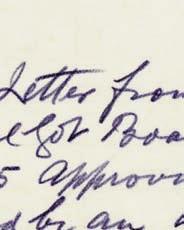 Letter from
Boa
5 approv
d by an